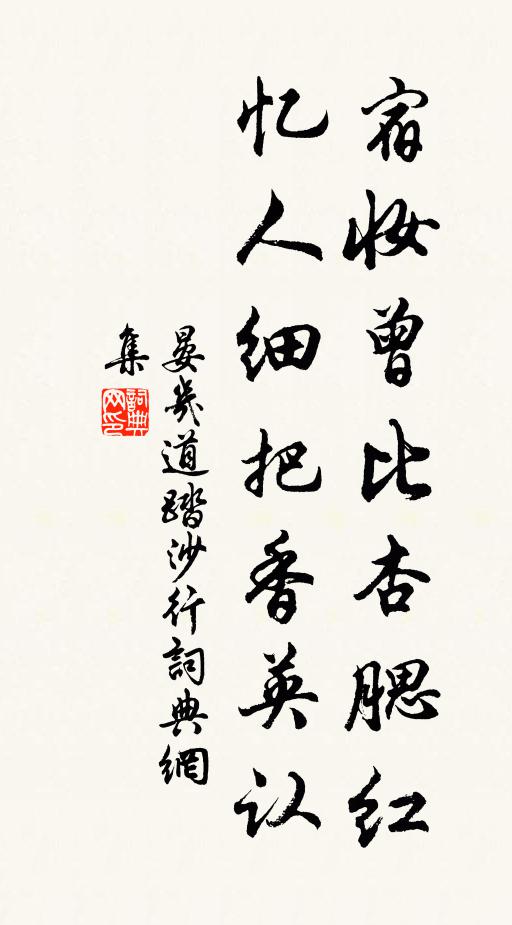 宿妆曾比杏腮红
忆人细把香英认
晏幾道踏沙行詞典網
集
詞典
网印